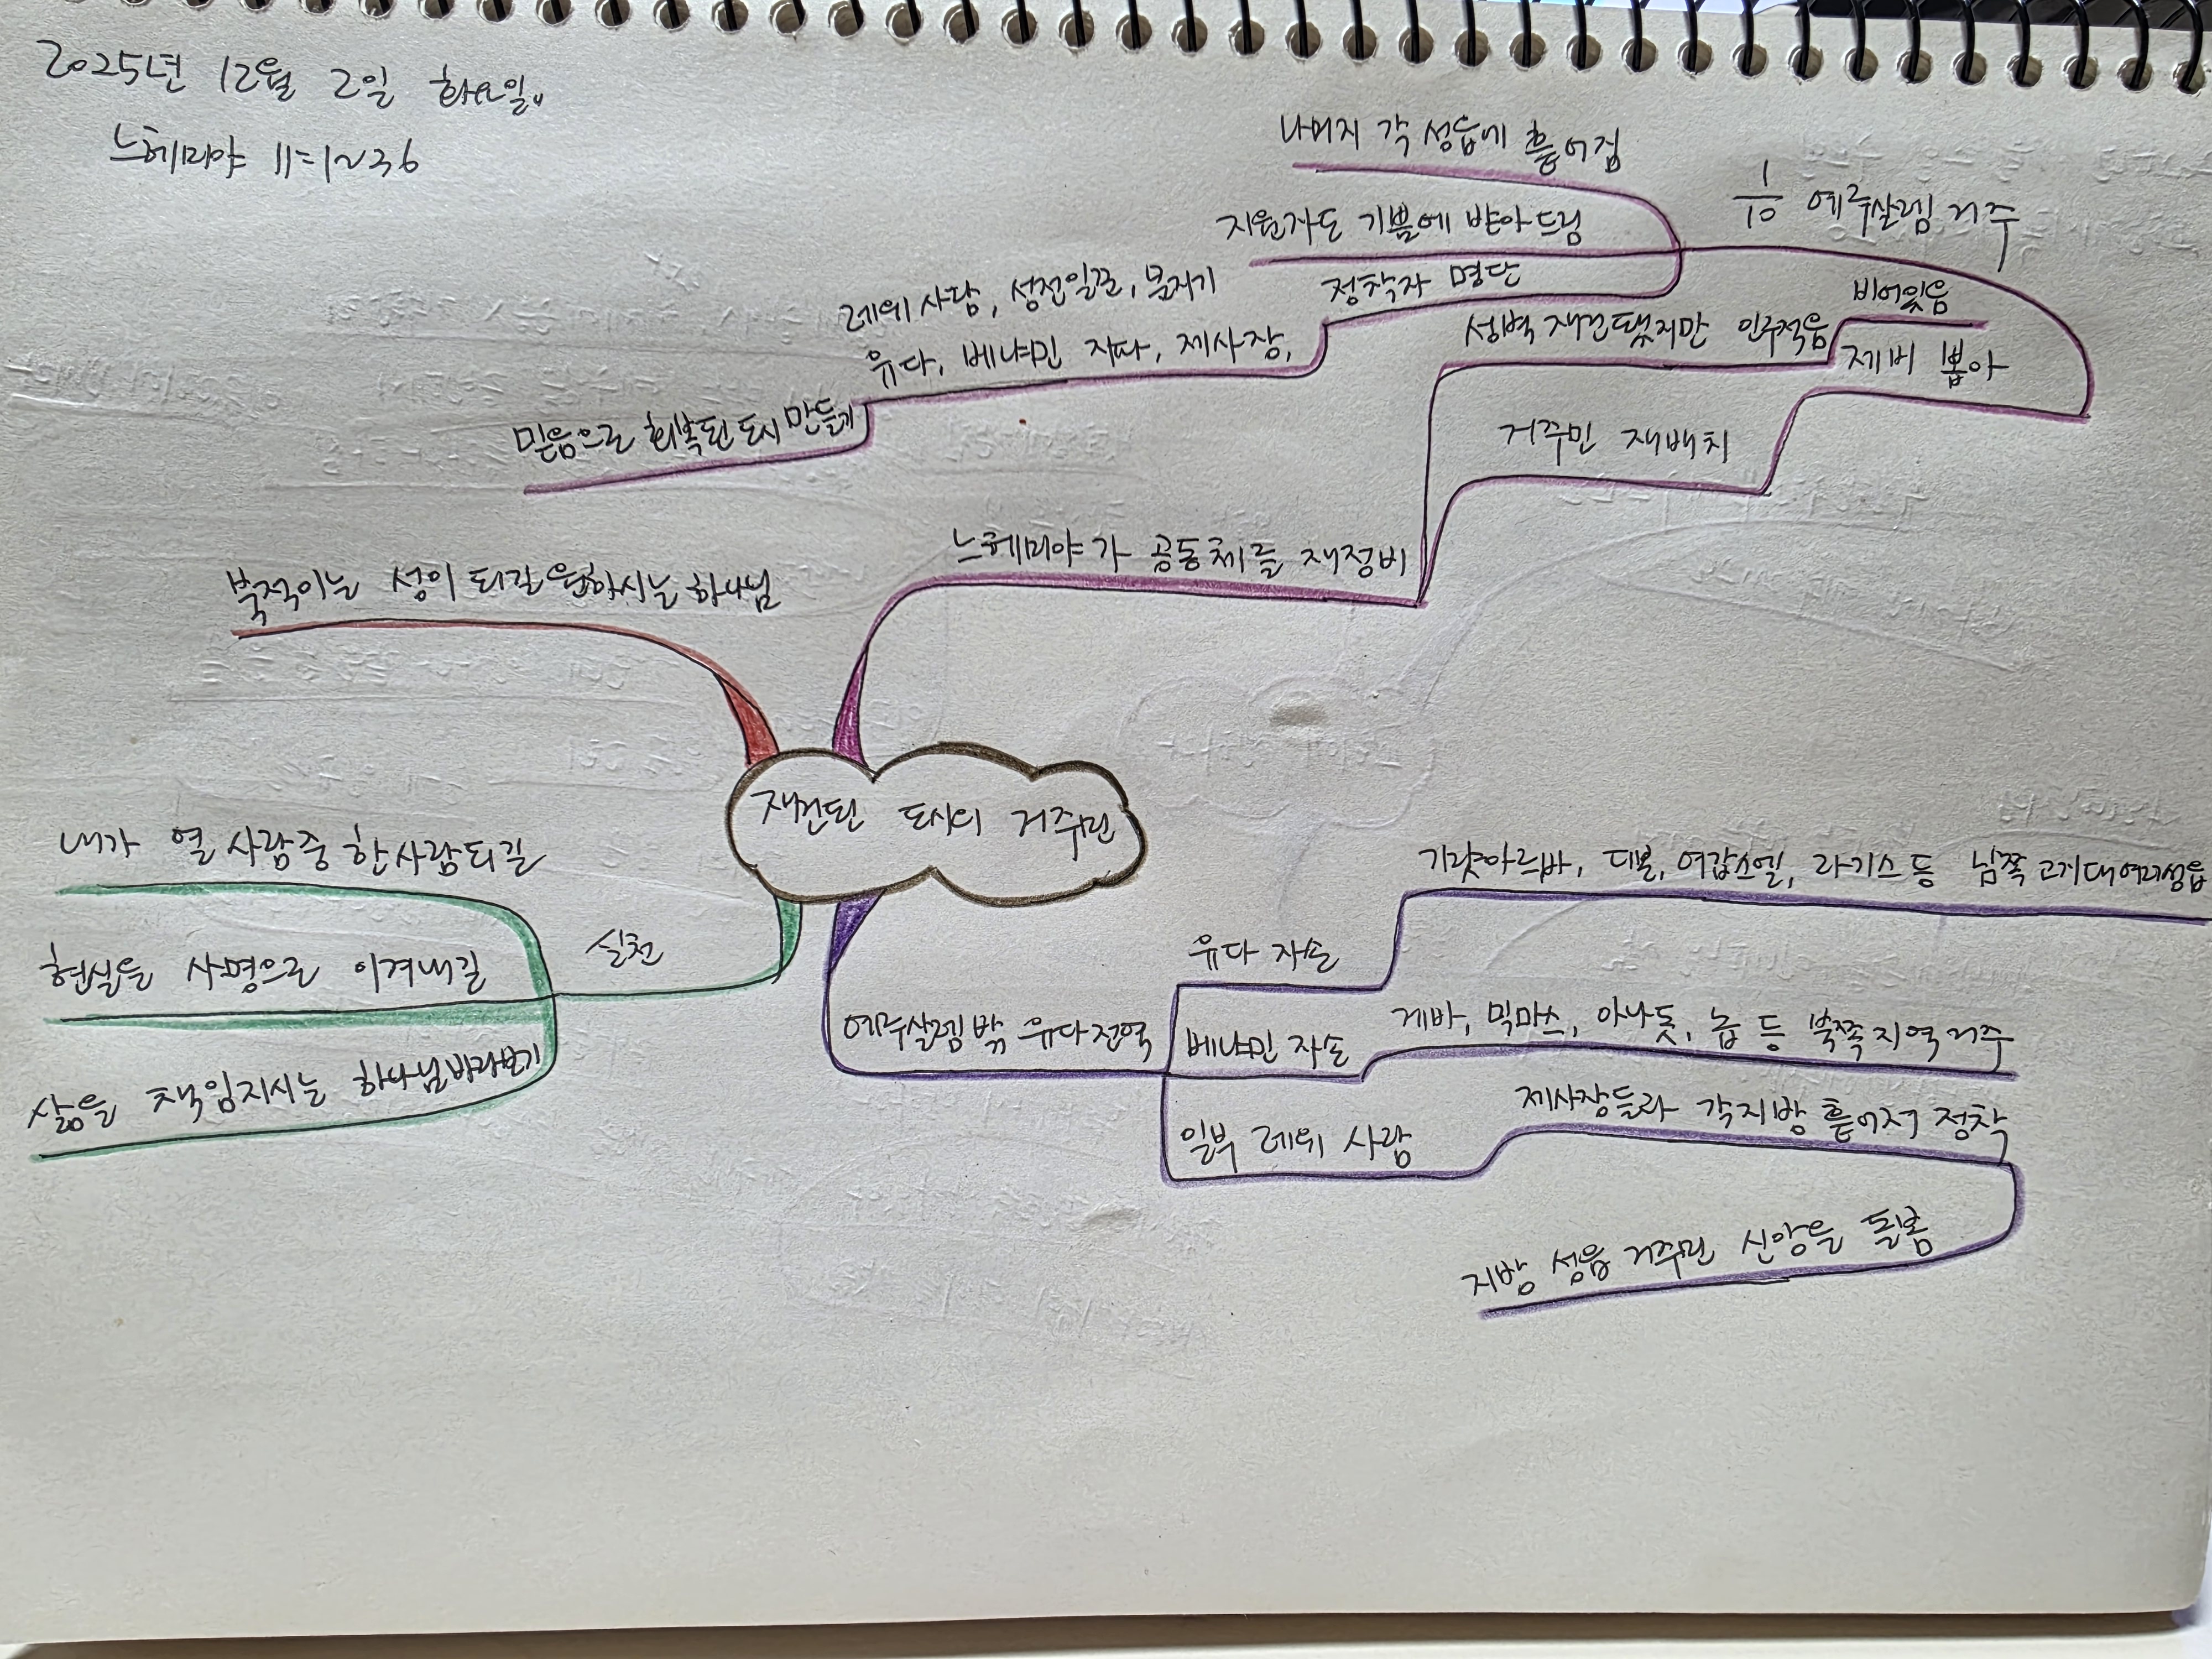 2025년 12월 2일 화요일.
느헤미야 11=1~36
나머지 각 성읍에 흩어짐
1/10 예루살렘 거주
지원자도 기쁨에 받아드림
정착자 명단
레위 사람, 성전일꾼, 문지기
유다, 베냐민 자파, 제사장,
믿음으로 회복된 도시 만들기
비어있음
성벽 재건됐지만 인구적음
제비 뽑아
거주민 재배치
느헤미야가 공동체를 재정비
북적이는 성이 되길 원하시는 하나님
재건된 도시의 거주민
내가 열 사람중 한사람되길
현실을 사명으로 이겨내길
삶을 책임지시는 하나님바라보기
실천
예루살렘 밖 유다전역
유다 자손
기럇아르바, 디본, 여갑스엘, 라기스 등 남쪽 고지대여러성읍
베냐민 자손
게바, 믹마스, 아나돗, 놉 등 북쪽지역거주
일부 레위 사람
제사장들과 각지방 흩어져 정착
지방 성읍 거주민 신앙을 돌봄